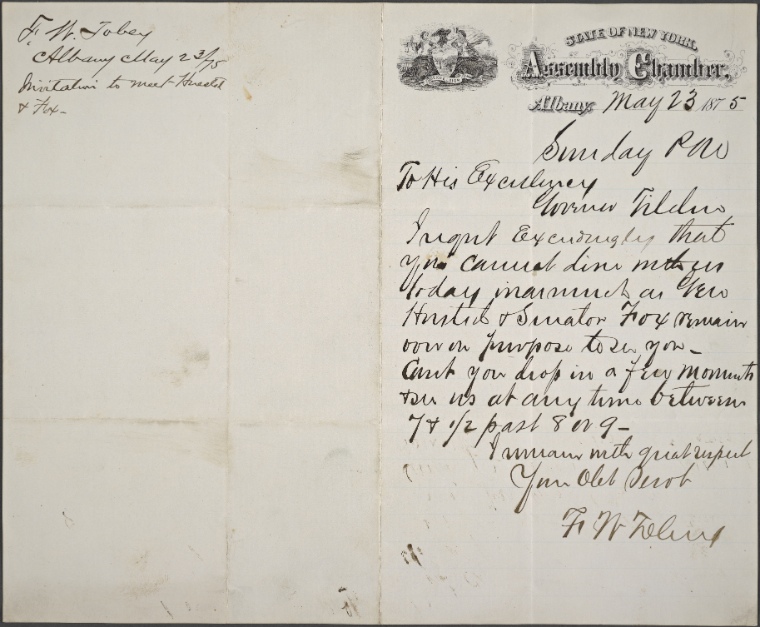 F. W. Tobey
Albany May 23/75
Invitation to meet Husted
& Fox -
STATE OF NEW YORK.
Assembly Chamber.
Albany, May 23 1875
Sunday P M
To His Excellency
Governor Tilden
I regret Exceedingly that
you cannot dine with us
today inasmuch as Gen
Husted & Senator Fox remain
over on purpose to see you -
Cant you drop in a few moments
& see us at any time between
7 & 1/2 past 8 or 9 -
I remain with great respect
Your Obt Servt
F W Tobey